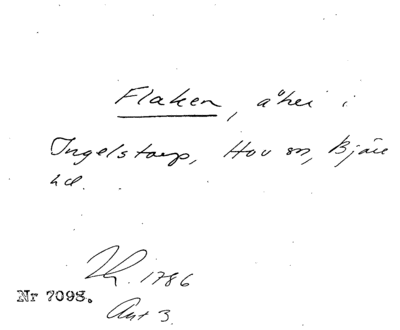 Flaken, åker i
Ingelstorp, Hov sn, Bjäre
hd.
1786
Nr 7098.
Akt 3.